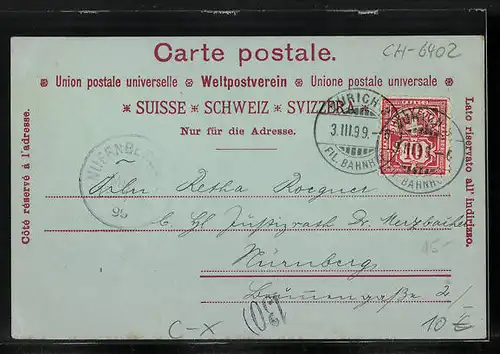 CH-6402
Carte postale.
Union postale universelle Weltpostverein Unione postale universale
SUISSE SCHWEIZ SVIZZERA
Nur für die Adresse.
Côté réservé à l'adresse.
Lato riservato all' indirizzo.
ZÜRICH
3.III.99.
FIL. BAHNHOF
10
NUERNBERG
99
Retha Rocquet
b. Justizrath Dr Merzbacher
Nürnberg
Brunnengasse 2/
15-
10 €
(130)
C-X